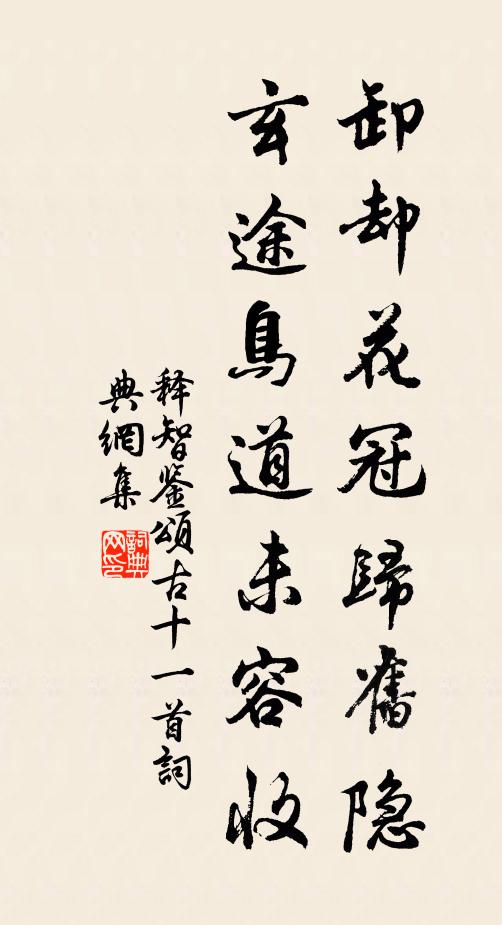 卸却花冠歸舊隐
玄途鳥道未容收
释智鉴頌古十一首詞
典網集
詞典
网印